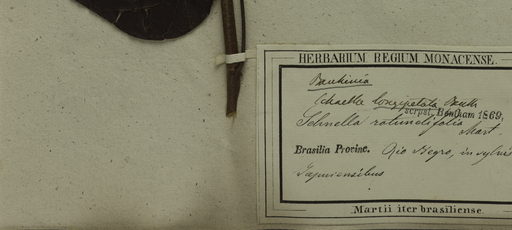 HERBARIUM REGIUM MONACENSE.
Bauhinia
longipetala Benth
scrpst. Bentham 1869.
Schnella rotundifolia
Mart.
Brasilia Provinc. Rio Negro, in sylvis
Japurensibus
Martii iter brasiliense.